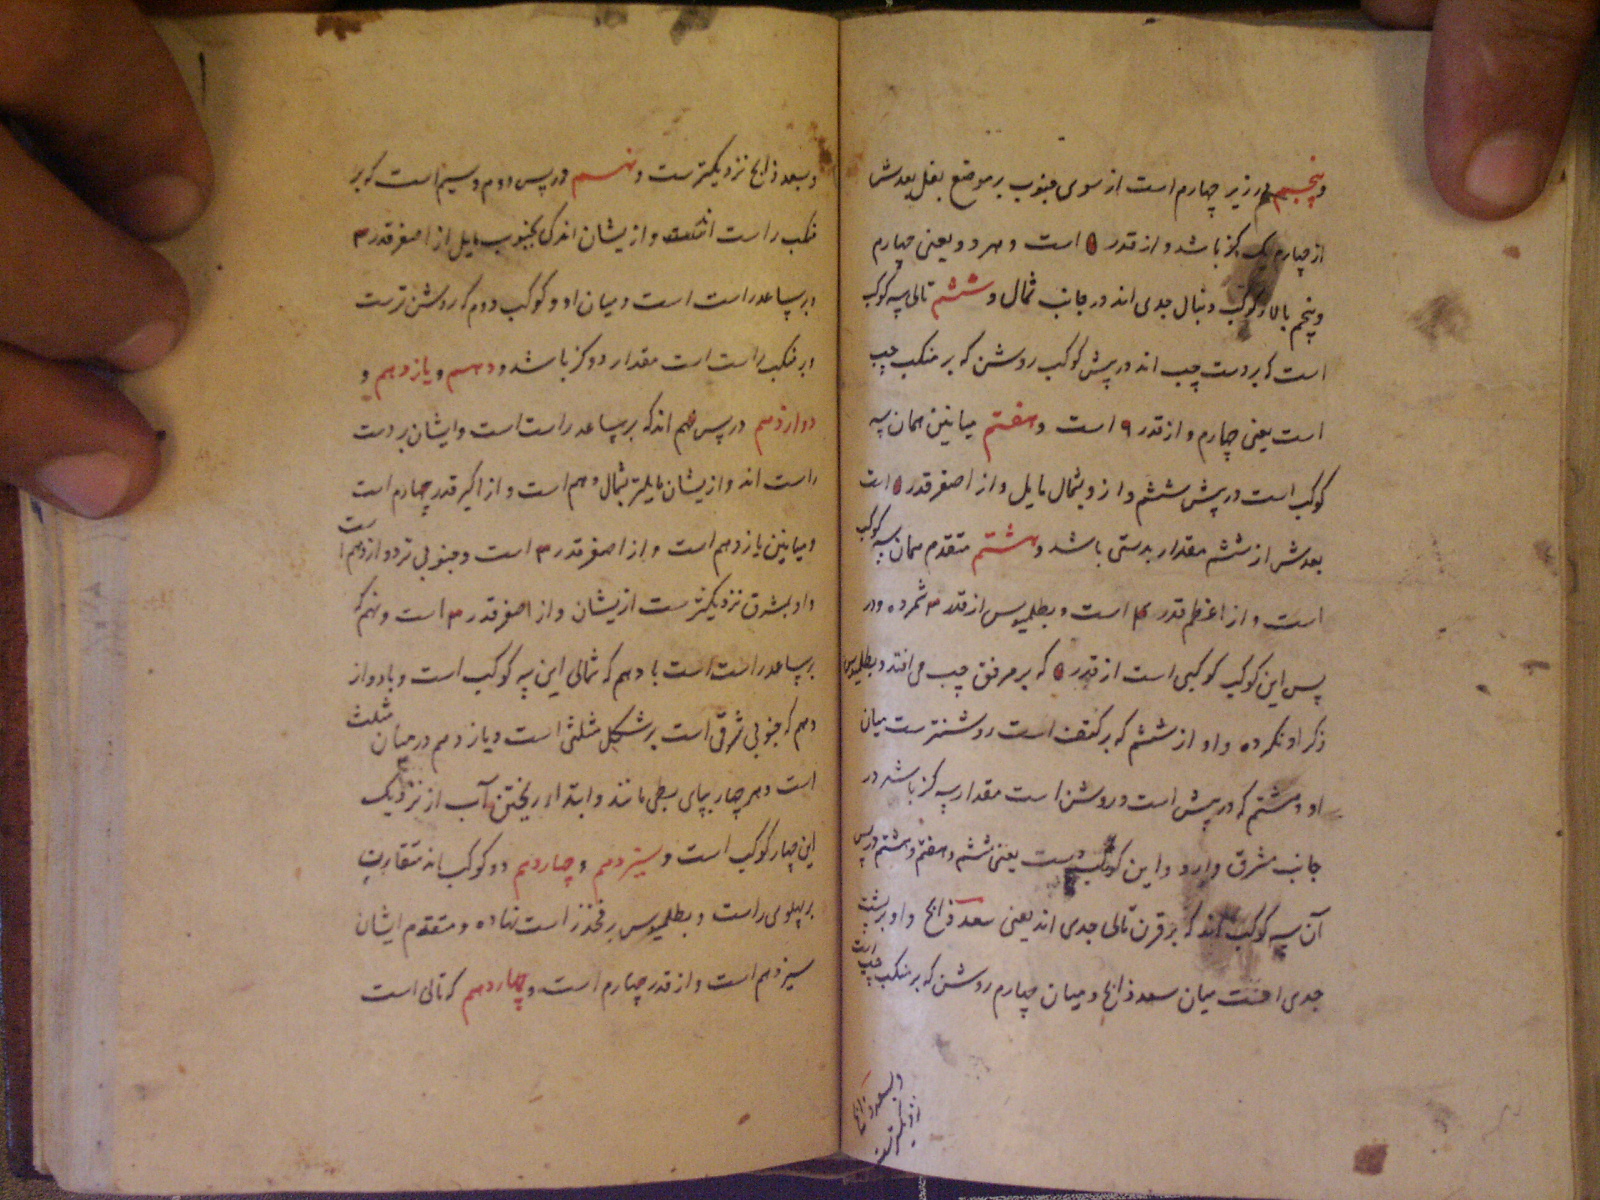 وپنجم در زیر چهارم است از سوی جنوب بر موضع بغل بعدش
از چهارم یک گز باشد و از قدر ۵ است و هر دو یعنی چهارم
وپنجم بالای کوکب دنبال جدی اند در جانب شمال و ششم تالی سه کوکب
است که بر دست چپ اند در پیش کوکب روشن که بر منکب چپ
است یعنی چهارم و از قدر ۹ است و هفتم میانین همان سه
کوکب است در پیش ششم و ازو بشمال مایل و از اصغر قدر ۵ است
بعدش از ششم مقدار بدستی باشد و هشتم متقدم همان سه کوکب
است و از اعظم قدر ۴ است و بطلمیوس از قدر ۳ شمرده و در
پس این کوکب کوکبی است از قدر ۵ که بر مرفق چپ می افتد و بطلیموس
ذکر او نکرده و او از ششم که بر کتف است روشنترست میان
او و هشتم که در پیش است و روشن است مقدار سه گز باشد در
جانب مشرق وارد و این کوکب دست یعنی ششم و هفتم و هشتم در پس
آن سه کوکب اند که بر قرن تالی جدی اند یعنی سعد ذابح و او بر پشت
جدی است میان سعد ذابح و میان چهارم روشن که بر منکب چپ است
وبسعد ذابح
نزدیکترست
وبسعد ذابح نزدیکترست و نهم در پس دوم و سیم است که بر
منکب راست است و ازیشان اندکی بجنوب مایل از اصغر قدر ۳
و بر ساعد راست است و میان او و کوکب دوم که روشن ترست
و بر منکب راست است مقدار دو گز باشد و دهم و یازدهم و
دوازدهم در پس نهم اند که بر ساعد راست است و ایشان بر دست
راست اند و ازیشان مایلتر بشمال دهم است و از اکبر قدر چهارم است
و میانین یازدهم است و از اصغر قدر ۳ است و جنوبی تر دوازدهم است
و او بمشرق نزدیکترست ازیشان و از اصغر قدر ۳ است و نهم که
بر ساعد راست است با دهم که شمالی این سه کوکب است و با دواز
دهم که جنوبی شرقی است بر شکل مثلثی است و یازدهم در میان مثلث
است و هر چهار بپای بطی مانند و ابتداء ریختن آب از نزدیک
این چهار کوکب است و سیزدهم و چهاردهم دو کوکب اند متقارب
بر پهلوی راست و بطلمیوس بر فخذ راست نهاده و متقدم ایشان
سیزدهم است و از قدر چهارم است و چهاردهم که تالی است